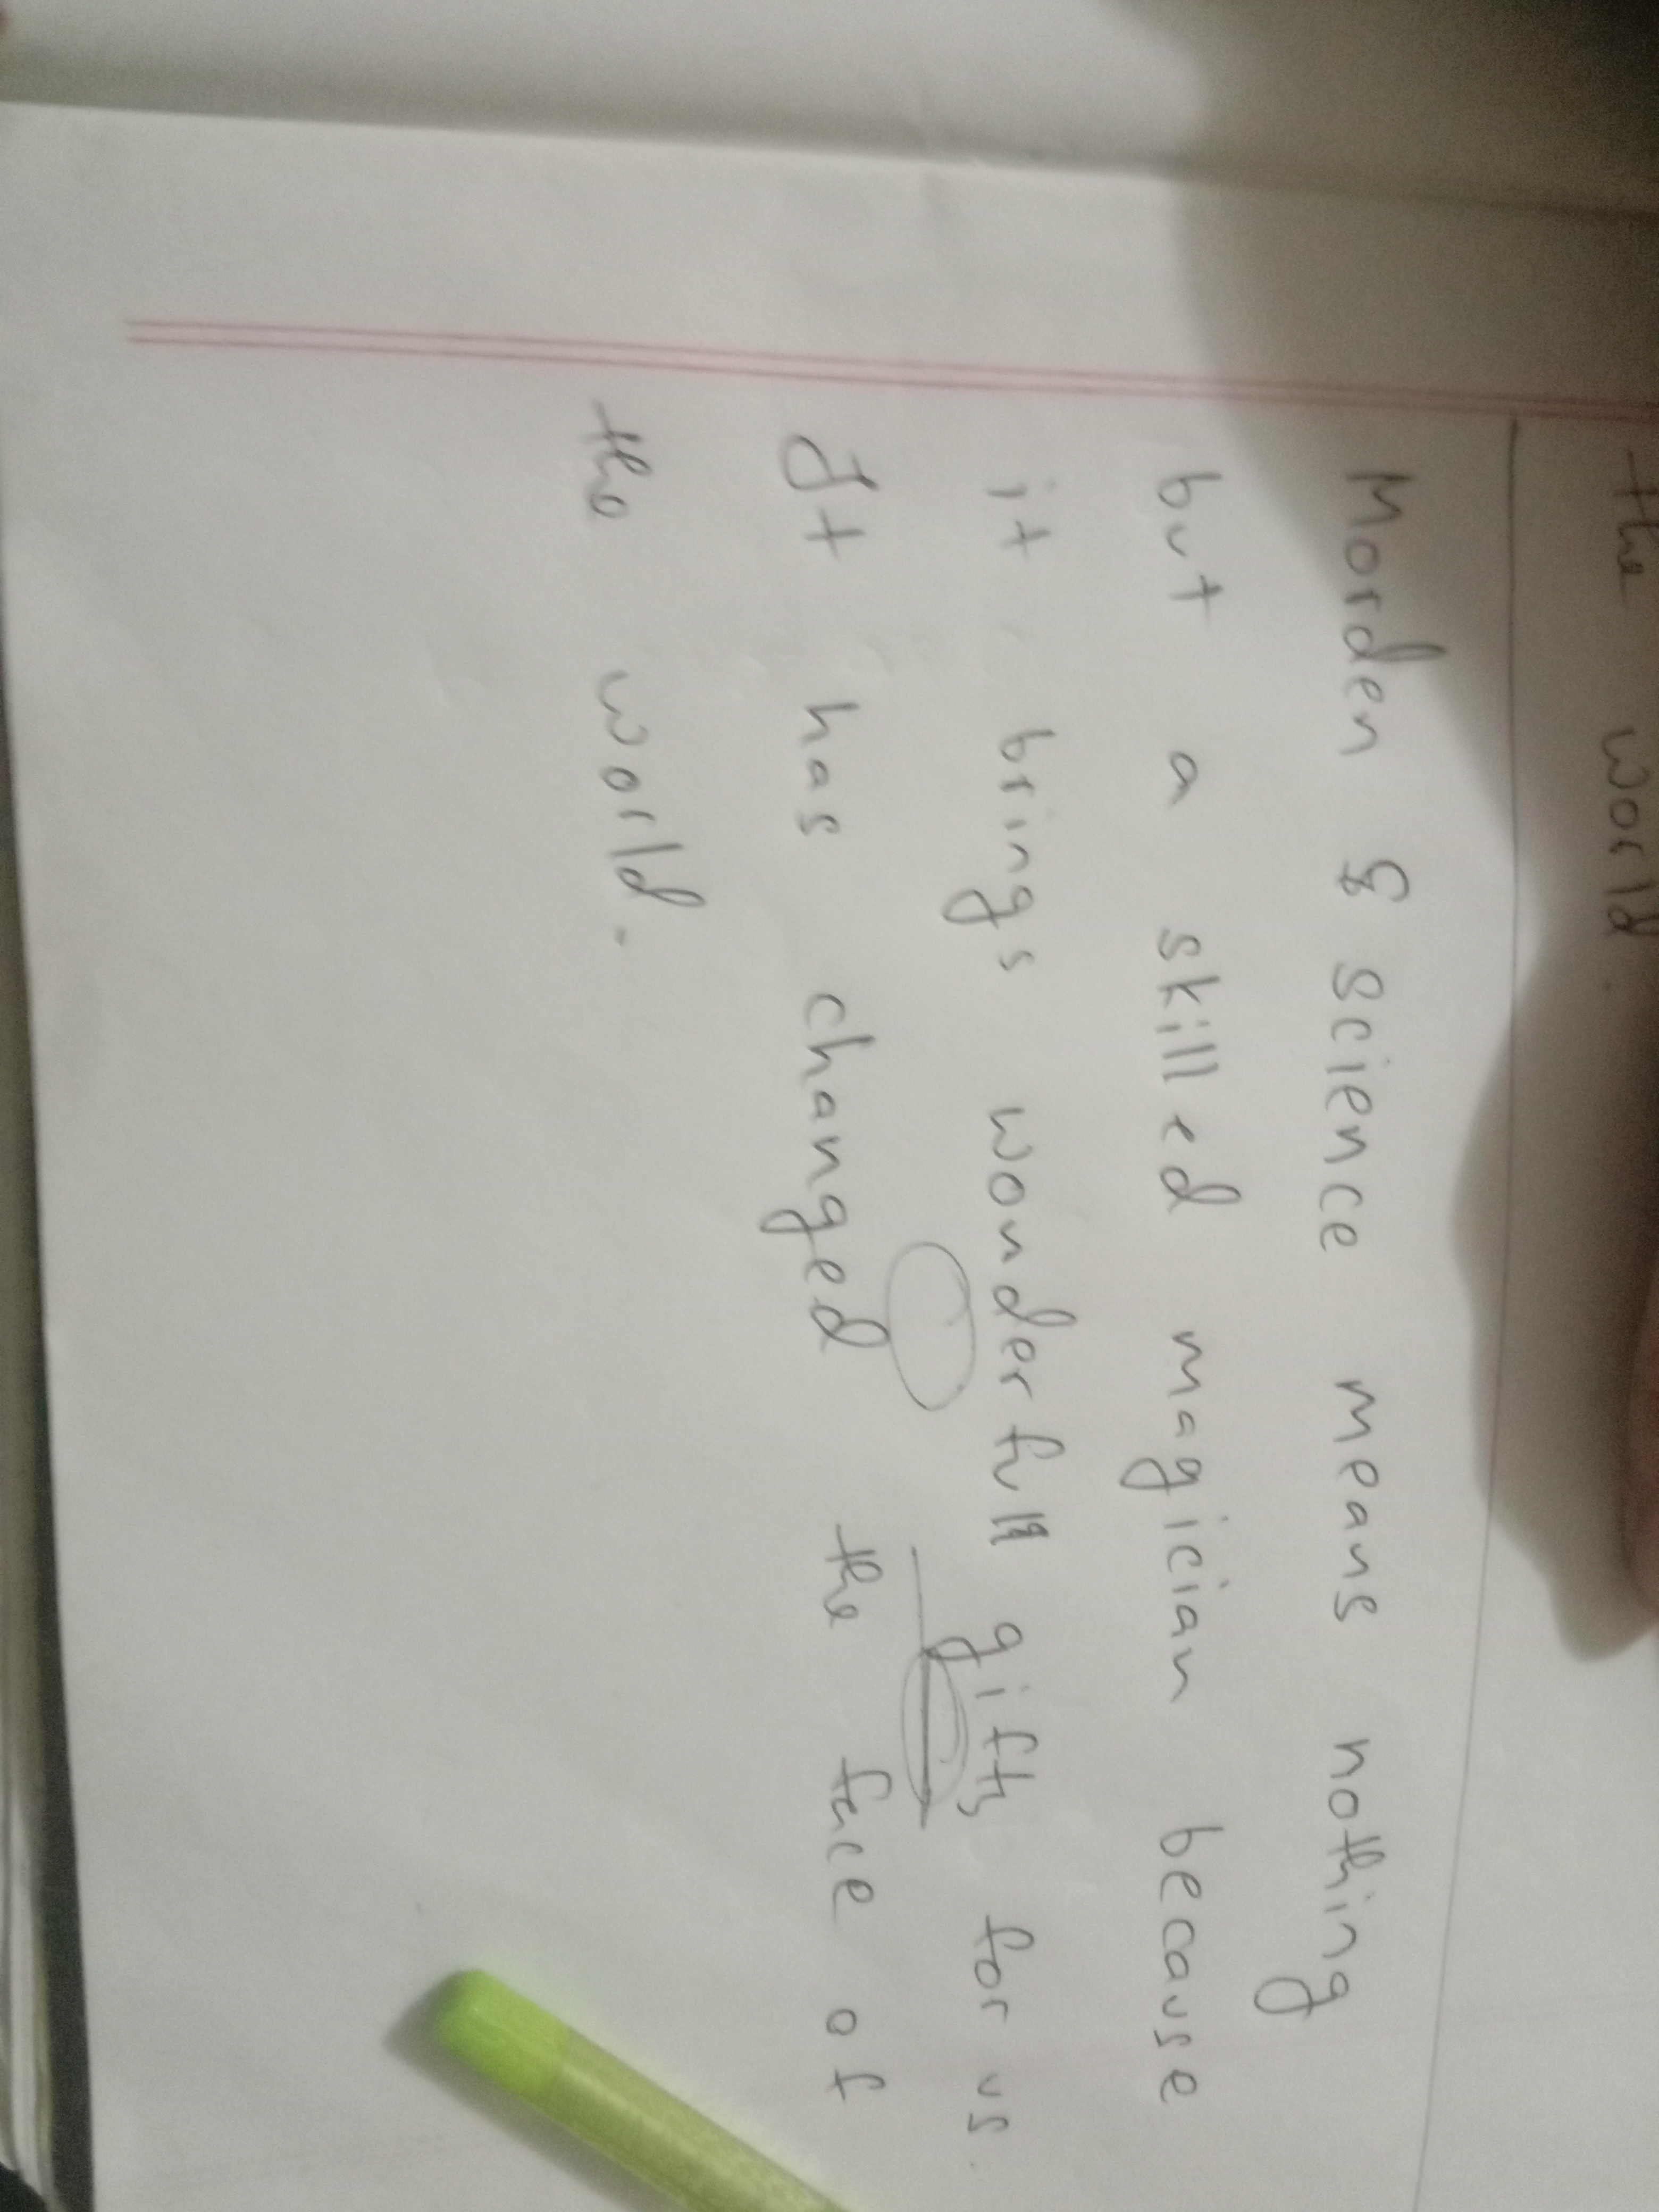 the world.
Morden science means nothing
but a skilled magician because
it brings wonderfull gifts for us.
It has changed the face of
the world.